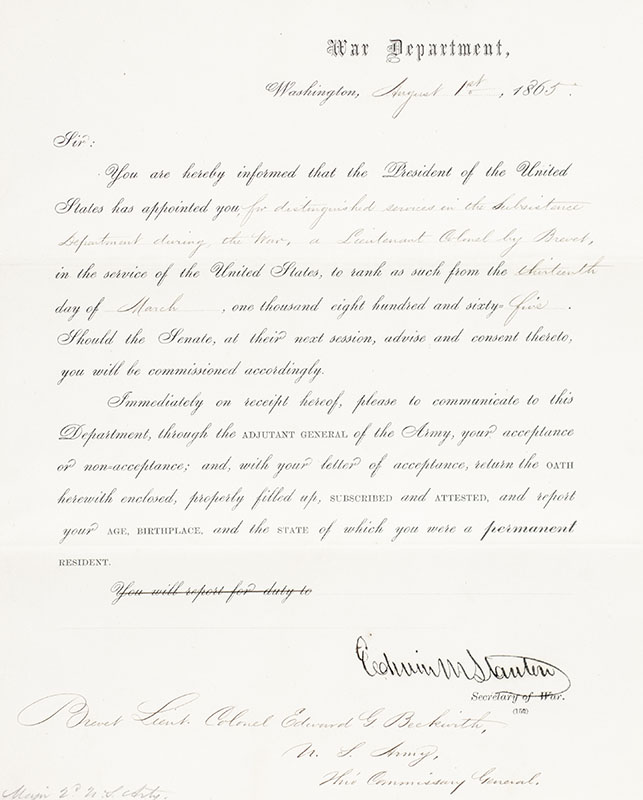 War Department,
Washington, August 1st, 1865.
Sir:
You are hereby informed that the President of the United
States has appointed you for distinguished services in the Subsistence
Department during the War, a Lieutenant Colonel by Brevet,
in the service of the United States, to rank as such from the thirteenth
day of March, one thousand eight hundred and sixty-five.
Should the Senate, at their next session, advise and consent thereto,
you will be commissioned accordingly.
Immediately on receipt hereof, please to communicate to this
Department, through the ADJUTANT GENERAL of the Army, your acceptance
or non-acceptance; and, with your letter of acceptance, return the OATH
herewith enclosed, properly filled up, SUBSCRIBED and ATTESTED, and report
your AGE, BIRTHPLACE, and the STATE of which you were a permanent
RESIDENT.
You will report for duty to
Edwin M Stanton
Secretary of War.
(152)
Brevet Lieut. Colonel Edward G Beckwith,
U. S. Army,
Thro' Commissary General.
Major 2d U.S. Arty.